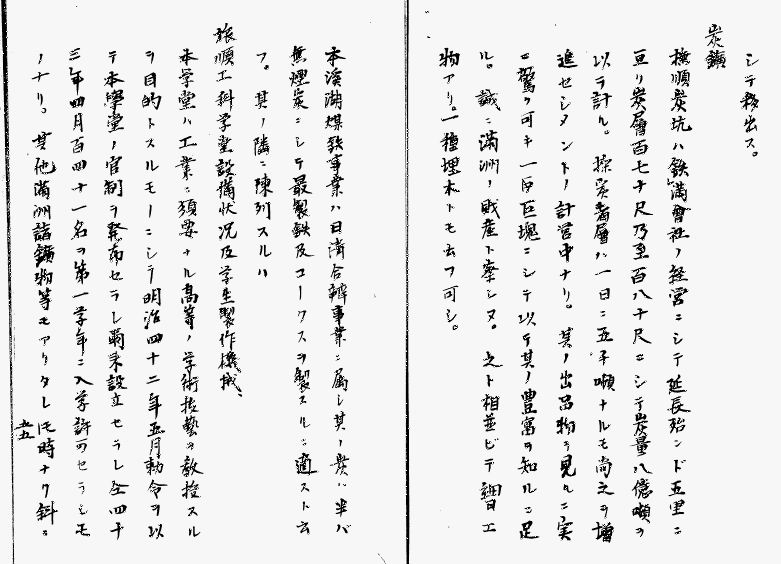 シテ務出ス。
炭鑛
撫順炭坑ハ鉄満會社ノ経営ニシテ延長殆ンド五里ニ
亘リ炭層百七十尺乃至百八十尺ニシテ炭量八億噸ヲ
以テ計ル。採炭着層ハ一日ニ五千噸ナルモ尚之ヲ増
進セシメントノ計営中ナリ。其ノ出品物ヲ見ルニ実
ニ驚ク可キ一大巨塊ニシテ以テ其ノ豊富ヲ知ルニ足
ル。誠ニ満洲ノ賊産ト察シヌ。之ト相並ビテ細日エ
物アリ。一種埋木トモ云フ可シ。
本溪湖煤鉄事業ハ日清合辨事業ニ属シ其ノ炭ハ半バ
無煙炭ニシテ最製鉄及コークスヲ製スルニ適スト云
フ。其ノ隣ニ陳列スルハ
旅順工科学堂設備状况及学生製作機械、
本学堂ハ工業ニ須要ナル高等ノ学術技藝ヲ教授スル
ヲ目的トスルモノニシテ明治四十二年五月勅令ヲ以
テ本學堂ノ官制ヲ発布セラレ爾来設立セラレ仝四十
三年四月百四十一名ヲ第一学年ニ入学許可セラシモ
ノナリ。其他満洲諸鑛物等モアリタレ𪜈時ナク斜ニ
五五